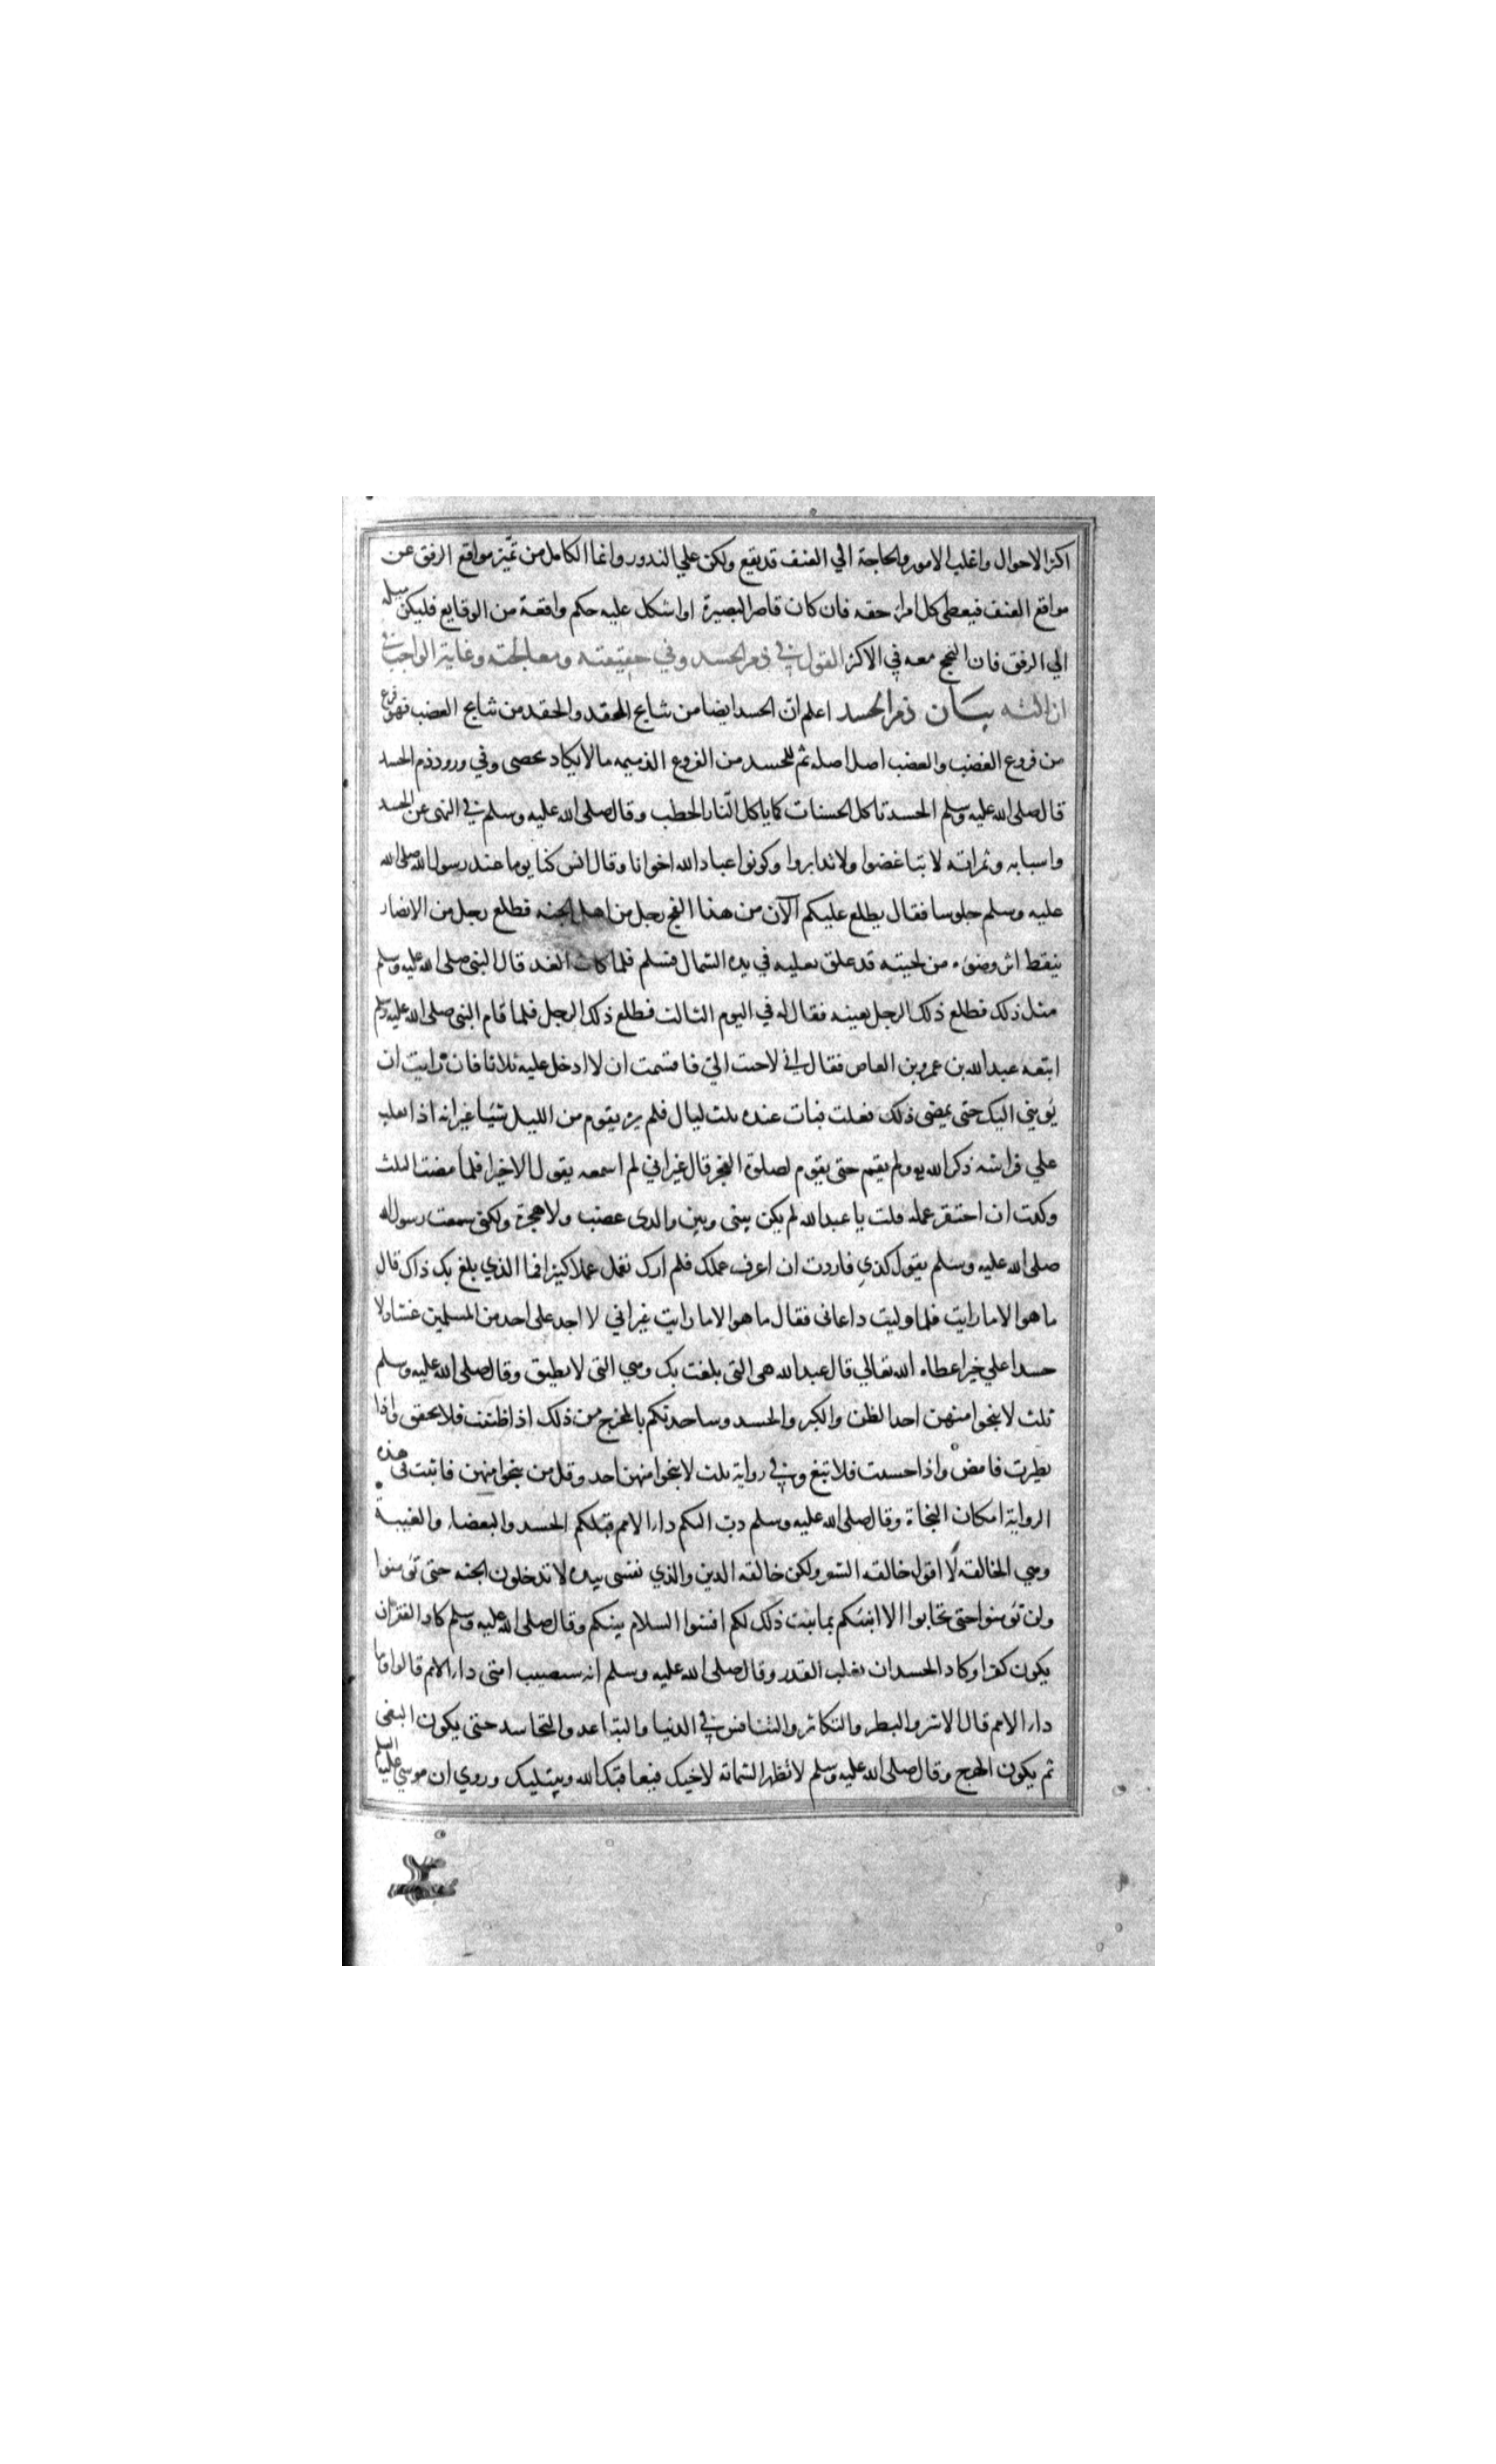 اكثر الاحوال واغلب الامور والحاجة الي العنف قد يقع ولكن علي الندور وانما الكامل من تميز مواقع الرفق عن
مواقع العنف فيعطي كل امرئ حقه فان كان قاصر البصيرة او اشكل عليه حكم واقعة من الوقايع فليكن ميله
الي الرفق فان النجح معه في الاكثر القول في ذم الحسد وفي حقيقته ومعالجته وغاية الواجب في
ازالته بيان ذم الحسد اعلم ان الحسد ايضا من نتايج الحقد والحقد من نتايج الغضب فهو فرع
من فروع الغضب والغضب اصل اصله ثم للحسد من الفروع الذميمه ما لا يكاد يحصي وفي ورود ذم الحسد
قال صلى الله عليه وسلم الحسد تاكل الحسنات كما ياكل النار الحطب وقال صلى الله عليه وسلم في النهى عن الحسد
واسبابه وثمراته لا تباغضوا ولا تدابروا وكونوا عباد الله اخوانا وقال انس كنا يوما عند رسول الله صلى الله
عليه وسلم جلوسا فقال يطلع عليكم الآن من هذا الفج رجل من اهل الجنه فطلع رجل من الانصار
ينقط اثر وضوء من لحيته قد علق نعليه في يده الشمال فسلم فلما كان الغد قال النبى صلى الله عليه وسلم
مثل ذلك فطلع ذلك الرجل بعينه فقال له في اليوم الثالث فطلع ذلك الرجل فلما قام النبى صلى الله عليه وسلم
اتبعه عبد الله بن عمرو بن العاص فقال اني لاحيت ابي فاقسمت ان لا ادخل عليه ثلاثا فان رايت ان
تؤيني اليك حتى يمضى ذلك فعلت فبات عنده ثلث ليال فلم يره يقوم من الليل شيئا غير انه اذا تقلب
علي فراشه ذكر الله ولم يقم حتى يقوم لصلوة الفجر قال غير اني لم اسمعه يقول الا خيرا فلما مضت الثلث
وكدت ان احتقر عمله قلت يا عبد الله لم يكن بينى وبين والدى غضب ولا هجرة ولكنى سمعت رسول الله
صلى الله عليه وسلم يقول كذي فاردت ان اعرف عملك فلم ارك تعمل عملا كثيرا فما الذي بلغ بك ذاك قال
ما هو الا ما رايت فلما وليت دعانى فقال ما هو الا ما رايت غير اني لا اجد على احد من المسلمين غشا ولا
حسدا علي خير اعطاه الله تعالي قال عبد الله هى التى بلغت بك وهي التى لا نطيق وقال صلى الله عليه وسلم
ثلث لا ينجوا منهن احد الظن والكبر والحسد وساحدثكم بالمخرج من ذلك اذا ظننت فلا تحقق واذا
تطيرت فامض واذا حسدت فلا تبغ وفي رواية ثلث لا ينجوا منهن احد وقل من ينجوا منهن فاثبت فى هذه
الرواية امكان النجاة وقال صلى الله عليه وسلم دب اليكم داء الامم قبلكم الحسد والبغضاء والغيبة
وهي الحالقه لا اقول حالقه الشعر ولكن حالقه الدين والذي نفسى بيده لا تدخلون الجنه حتى تؤمنوا
ولن تؤمنوا حتى تحابوا الا انبئكم بما يثبت ذلك لكم افشوا السلام بينكم وقال صلى الله عليه وسلم كاد الفقر ان
يكون كفرا وكاد الحسد ان يغلب القدر وقال صلى الله عليه وسلم انه سيصيب امتى داء الامم قالوا وما
داء الامم قال الاشر والبطر والتكاثر والتنافس في الدنيا والتباعد والتحاسد حتى يكون البغى
ثم يكون الهرج وقال صلى الله عليه وسلم لا تظهر الشماته لاخيك فيعاقبك الله ويبتليك وروي ان موسي عليه السلم